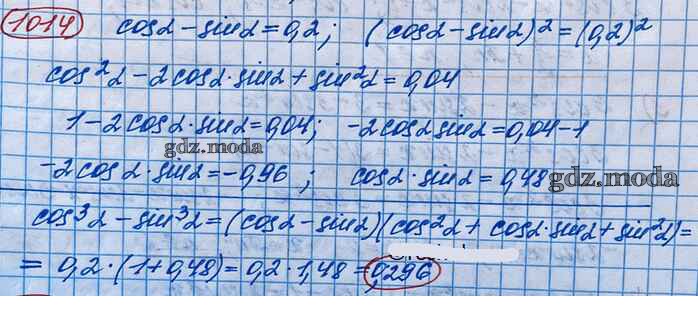 1014 cosα - sinα = 0,2; (cosα - sinα)² = (0,2)²
cos²α - 2cosα·sinα + sin²α = 0,04
1 - 2cosα·sinα = 0,04; -2cosα sinα = 0,04 - 1
gdz.moda
-2cosα·sinα = -0,96; cosα·sinα = 0,48
gdz.moda
cos³α - sin³α = (cosα - sinα)(cos²α + cosα·sinα + sin²α) =
= 0,2·(1+0,48) = 0,2·1,48 = 0,296